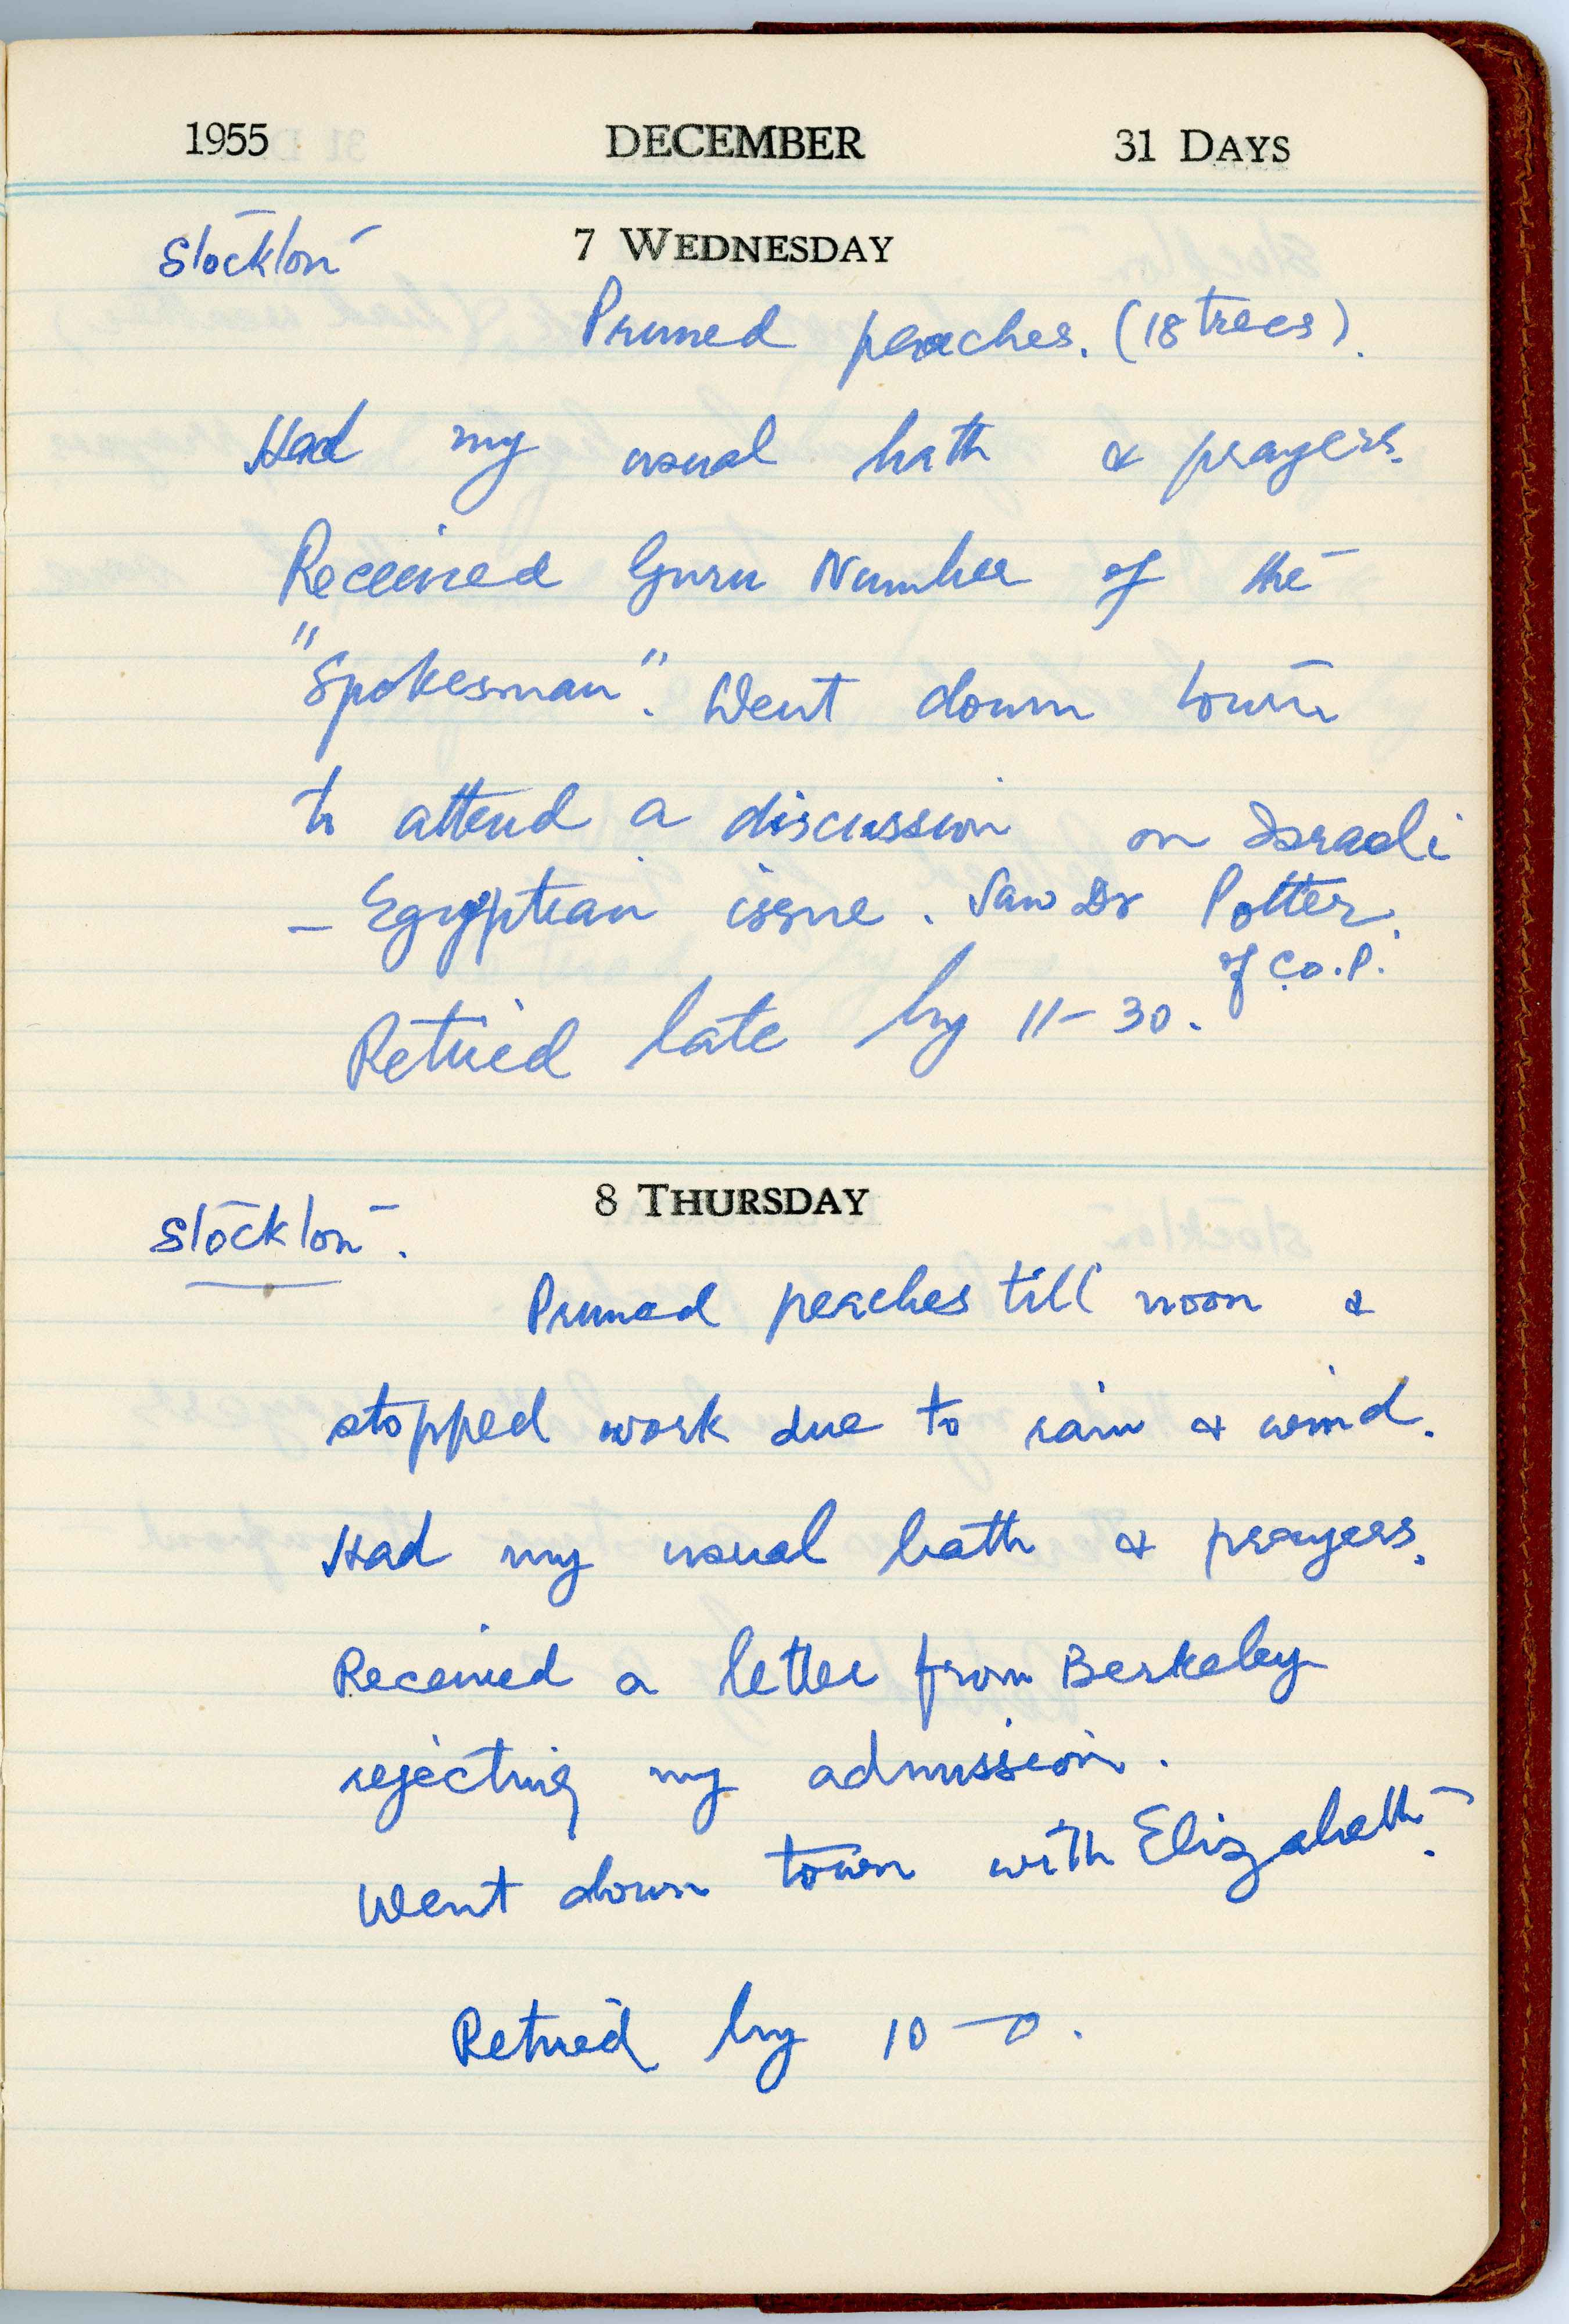 1955 DECEMBER 31 DAYS
Stockton 7 WEDNESDAY
Pruned peaches. (18 trees).
Had my usual bath & prayers.
Received Guru Number of the
"Spokesman". Went down town
to attend a discussion on Israeli
- Egyptian issue. Saw Dr Potter.
of C.O.P.
Retired late by 11-30.
Stockton. 8 THURSDAY
Pruned peaches till noon &
stopped work due to rain & wind.
Had my usual bath & prayers.
Received a letter from Berkeley
rejecting my admission.
Went down town with Elizabeth.
Retired by 10-0.